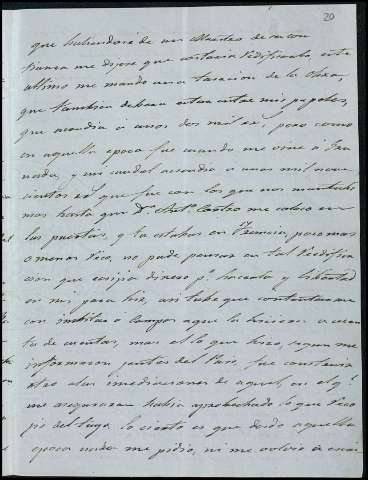 20
que habiendose de un Maestro de su con
fianza me dijese que costaria redificarla, este
ultimo me mando una tasacion de la Obra,
que tambien debera estar entre mis papeles,
que ascendia a unos dos mil rs, pero como
en aquella epoca fue cuando me vine á Gra
nada, y mi caudal ascendia a unos mil nove
cientos rs que fue con los que nos mantubi
mos hasta que Dn Anto Castro me coloco en
las puertas, y tu estabas en Francia, poco mas
o menos rico, no pude pensar en tal redifica
cion que exijia dinero pa hacerla y libertad
en mi para hir, asi tube que contentarme
con imbitar a Campos a que la hiciera a cuen
ta de cuentas, mas el lo que hizo, segun me
informaron parientes del Pais, fue construir
otra alas imediaciones de aquel, en el qe
me aseguraron habia aprobechado lo que
pio del tuyo lo cierto es que desde aquella
epoca nada me pidio, ni me volvio á escri